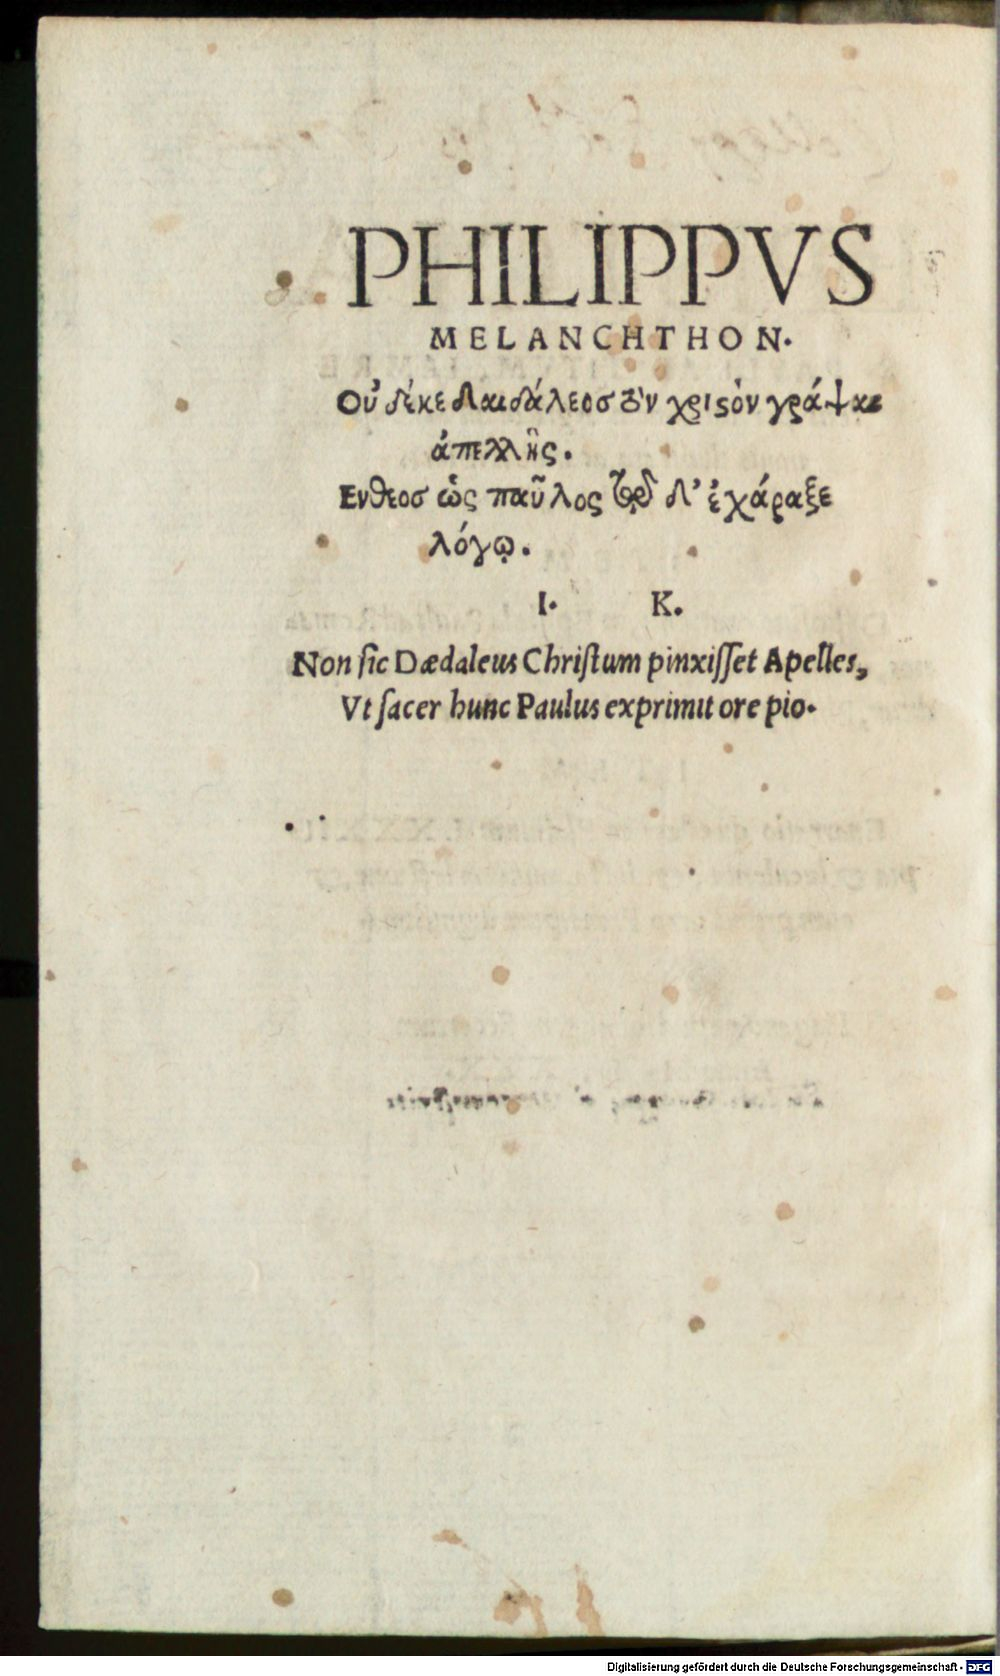 PHILIPPVS
MELANCHTHON.
Οὐ δέκε δαιδάλεοσ τὸν χριστὸν γράψαι
ἀπελλῆς.
Ενθεοσ ὡς παῦλος δ' ἐχάραξε
λόγῳ.
I. K.
Non ſic Dædaleus Chriſtum pinxiſſet Apelles,
Vt ſacer hunc Paulus exprimit ore pio.
Digitalisierung gefördert durch die Deutsche Forschungsgemeinschaft - DFG